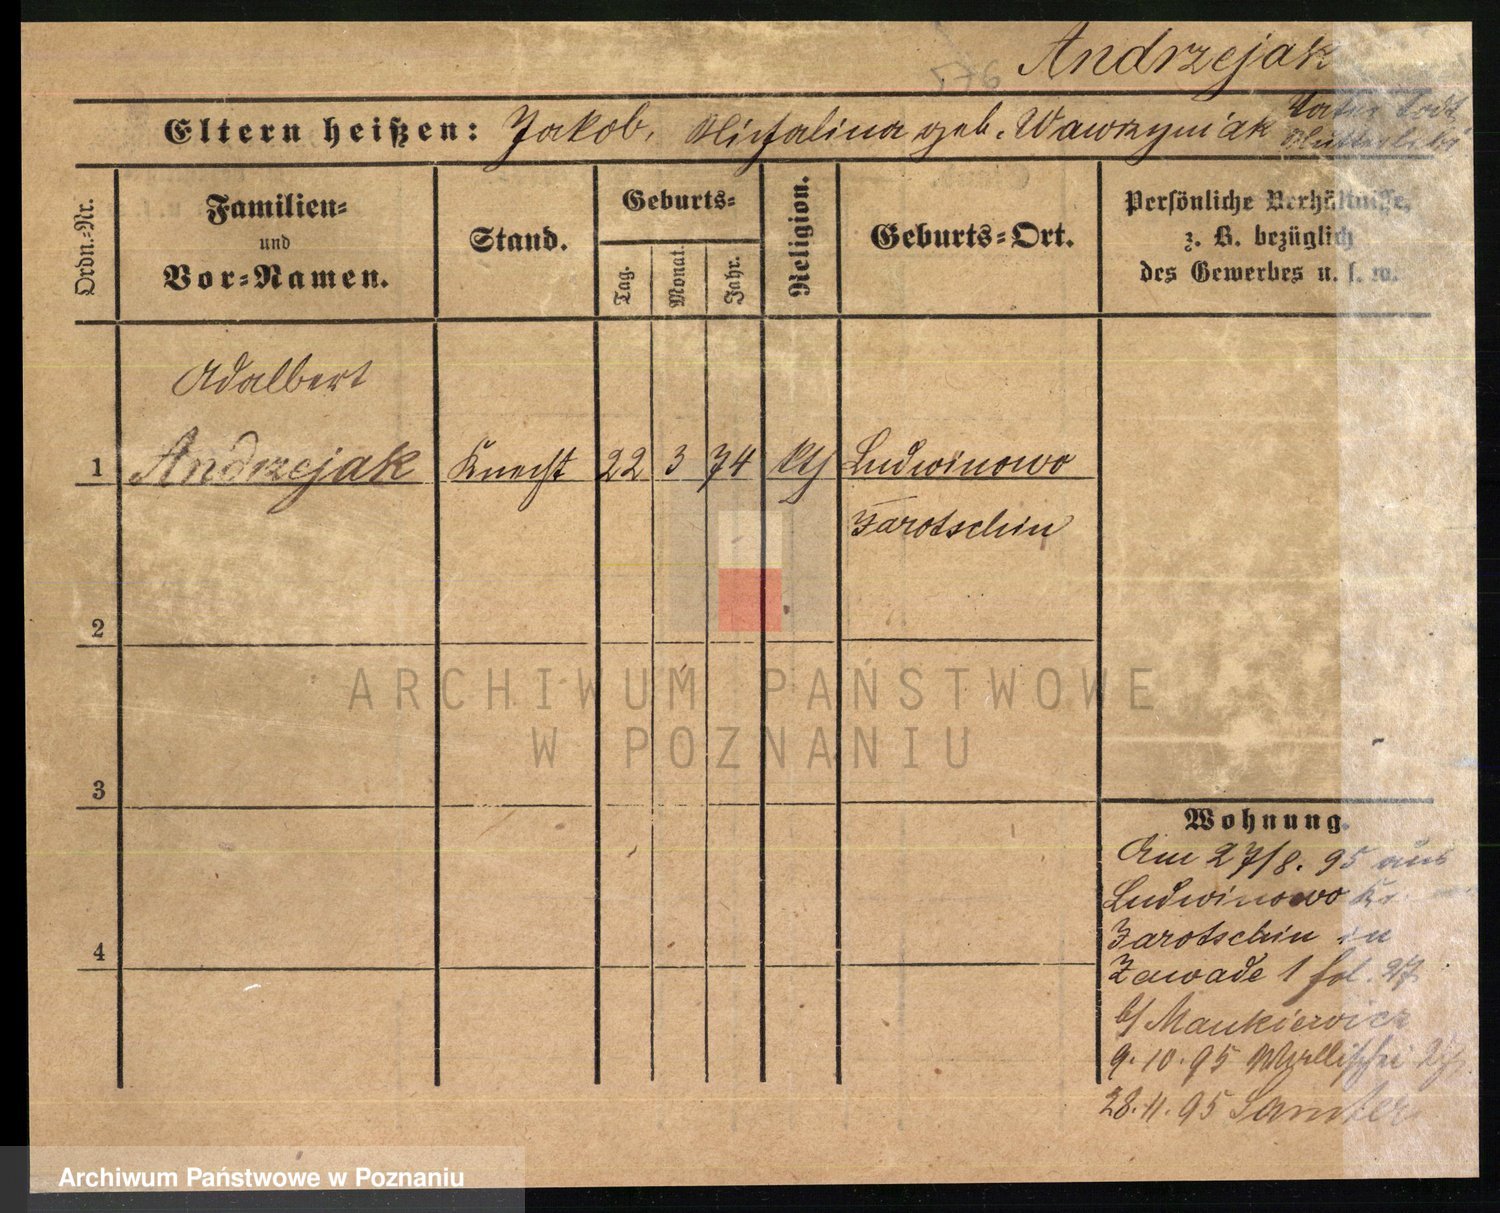 Andrzejak
Eltern heißen: Jakob, Michalina geb. Wawrzyniak Vater todt
Mutter lebt
Ordn.-Nr.
Familien-
und
Vor-Namen.
Stand.
Geburts-
Tag.
Monat.
Jahr.
Religion.
Geburts-Ort.
Persönliche Verhältnisse,
z. B. bezüglich
des Gewerbes u. s. w.
Adalbert
1 Andrzejak Knecht 22 3 74 kth Ludwinowo
Jarotschin
2
3
4
ARCHIWUM PAŃSTWOWE
W POZNANIU
Wohnung.
Am 27/8. 95 aus
Ludwinowo Kr.
Jarotschin in
Zawade 1 fol. 27.
b/ Mankiewicz
9.10.95 Wallischei
28.11.95 Samter
Archiwum Państwowe w Poznaniu